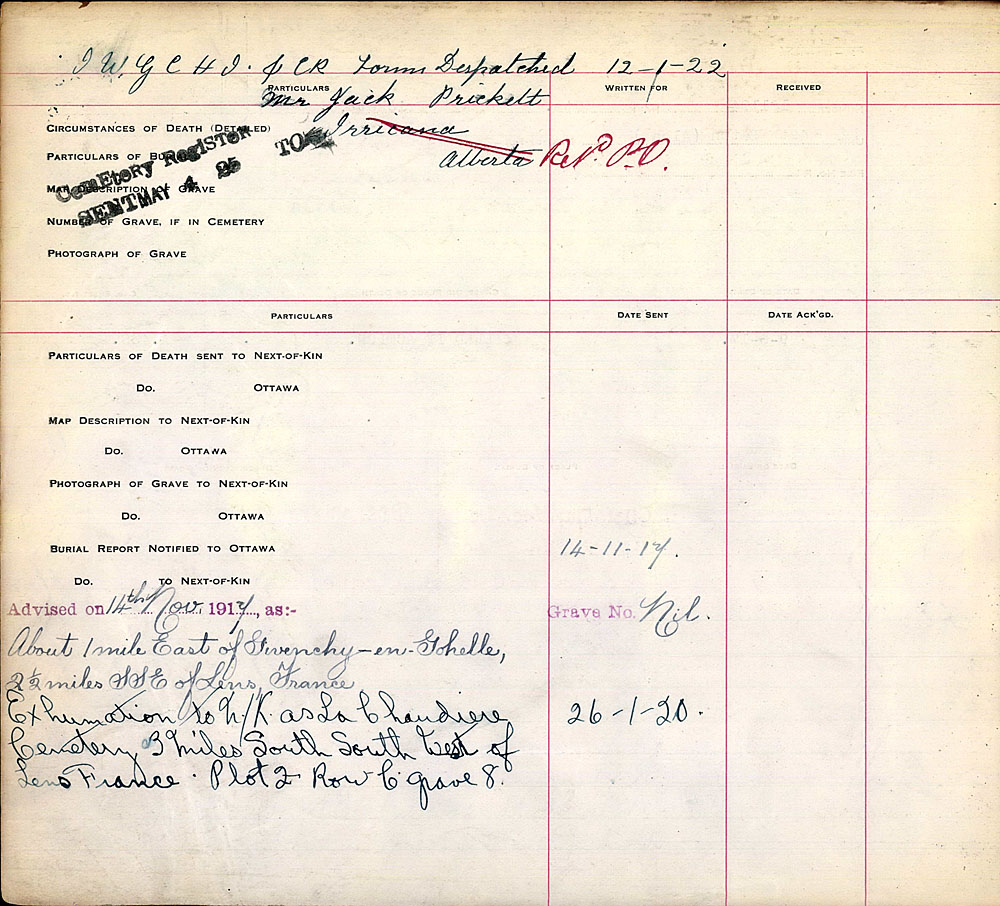 I W. G C H I. & CR Form Despatched 12-1-22
PARTICULARS WRITTEN FOR RECEIVED
Mr Jack Prickett
CIRCUMSTANCES OF DEATH (DETAILED) Irricana
PARTICULARS OF BURIAL Alberta P.O.
MAP DESCRIPTION OF GRAVE
CEMETERY REGISTER TO
SENT MAY 4 25
NUMBER OF GRAVE, IF IN CEMETERY
PHOTOGRAPH OF GRAVE
PARTICULARS DATE SENT DATE ACK'GD.
PARTICULARS OF DEATH SENT TO NEXT-OF-KIN
DO. OTTAWA
MAP DESCRIPTION TO NEXT-OF-KIN
DO. OTTAWA
PHOTOGRAPH OF GRAVE TO NEXT-OF-KIN
DO. OTTAWA
BURIAL REPORT NOTIFIED TO OTTAWA 14-11-17.
DO. TO NEXT-OF-KIN
Advised on 14th Nov. 1917, as:- Grave No. Nil.
About 1 mile East of Givenchy-en-Gohelle,
2½ miles SSE of Lens, France
Exhumation to N/K as La Chaudiere 26-1-20.
Cemetery 3 miles South South West of
Lens France. Plot 2 Row C grave 8.